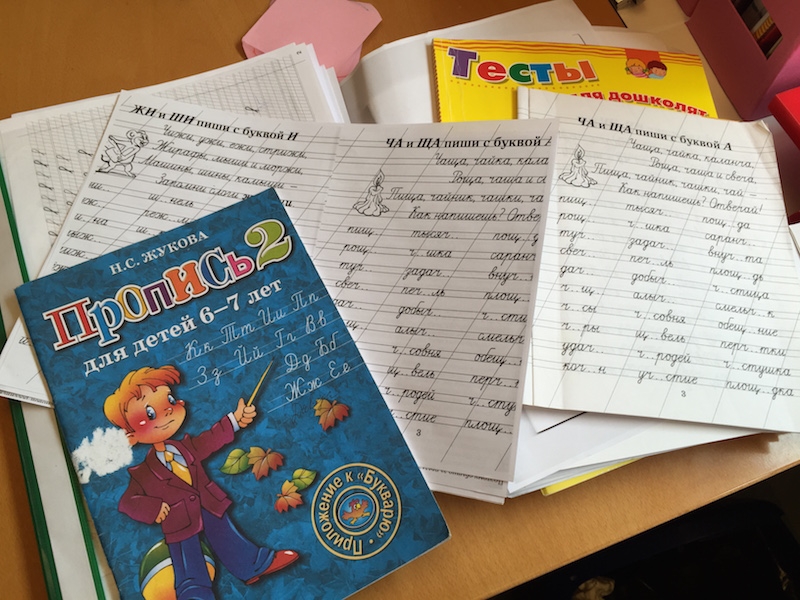 Тесты
для дошколят
ЖИ и ШИ пиши с буквой И
Чижи, ужи, ежи, стрижи,
Жирафы, мыши и моржи,
Машины, шины, камыши –
Запомни слоги
ЧА и ЩА пиши с буквой
Чаща, чайка, калан
Роща, чаща и с
Пища, чайник, чашки,
Как напишешь? Отве
пищ.. тысяч.. пощ..
рощ.. ч..шка саранч
туч.. задач.. внуч..
свеч.. печ..ль площ..
добыч.. ч..сти
алыч.. смельч
ч..совня обещ..
щ..вель перч..
ч..родей ч..сту
..стие площ..
3
ЧА и ЩА пиши с буквой А
Чаща, чайка, каланча,
Роща, чаща и свеча,
Пища, чайник, чашки, чай –
Как напишешь? Отвечай!
пищ.. тысяч.. пощ..да
рощ.. ч..шка саранч..
туч.. задач.. внуч..та
свеч.. печ..ль площ..дь
добыч.. ч..стица
ч..щ.. алыч.. смельч..к
ч..сы ч..совня обещ..ние
ч..ры щ..вель перч..тки
удач.. ч..родей ч..стушка
кач..н уч..стие площ..дка
3
Н.С. ЖУКОВА
Пропись 2
для детей 6–7 лет
Кк Тт Ии Пп
Зз Йй Гг Вв
Дд Бб
Жж Ее
Приложение к «Букварю»